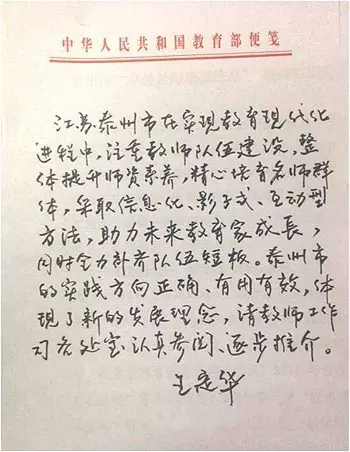 中华人民共和国教育部便笺
江苏泰州市在实现教育现代化
进程中，注重教师队伍建设，整
体提升师资素养，精心培育名师群
体，采取信息化、影子式、互动型
方法，助力未来教育家成长，
同时全力补齐队伍短板。泰州市
的实践方向正确、有用有效，体
现了新的发展理念，请教师工作
司各处室认真参阅、逐步推介。
王定华